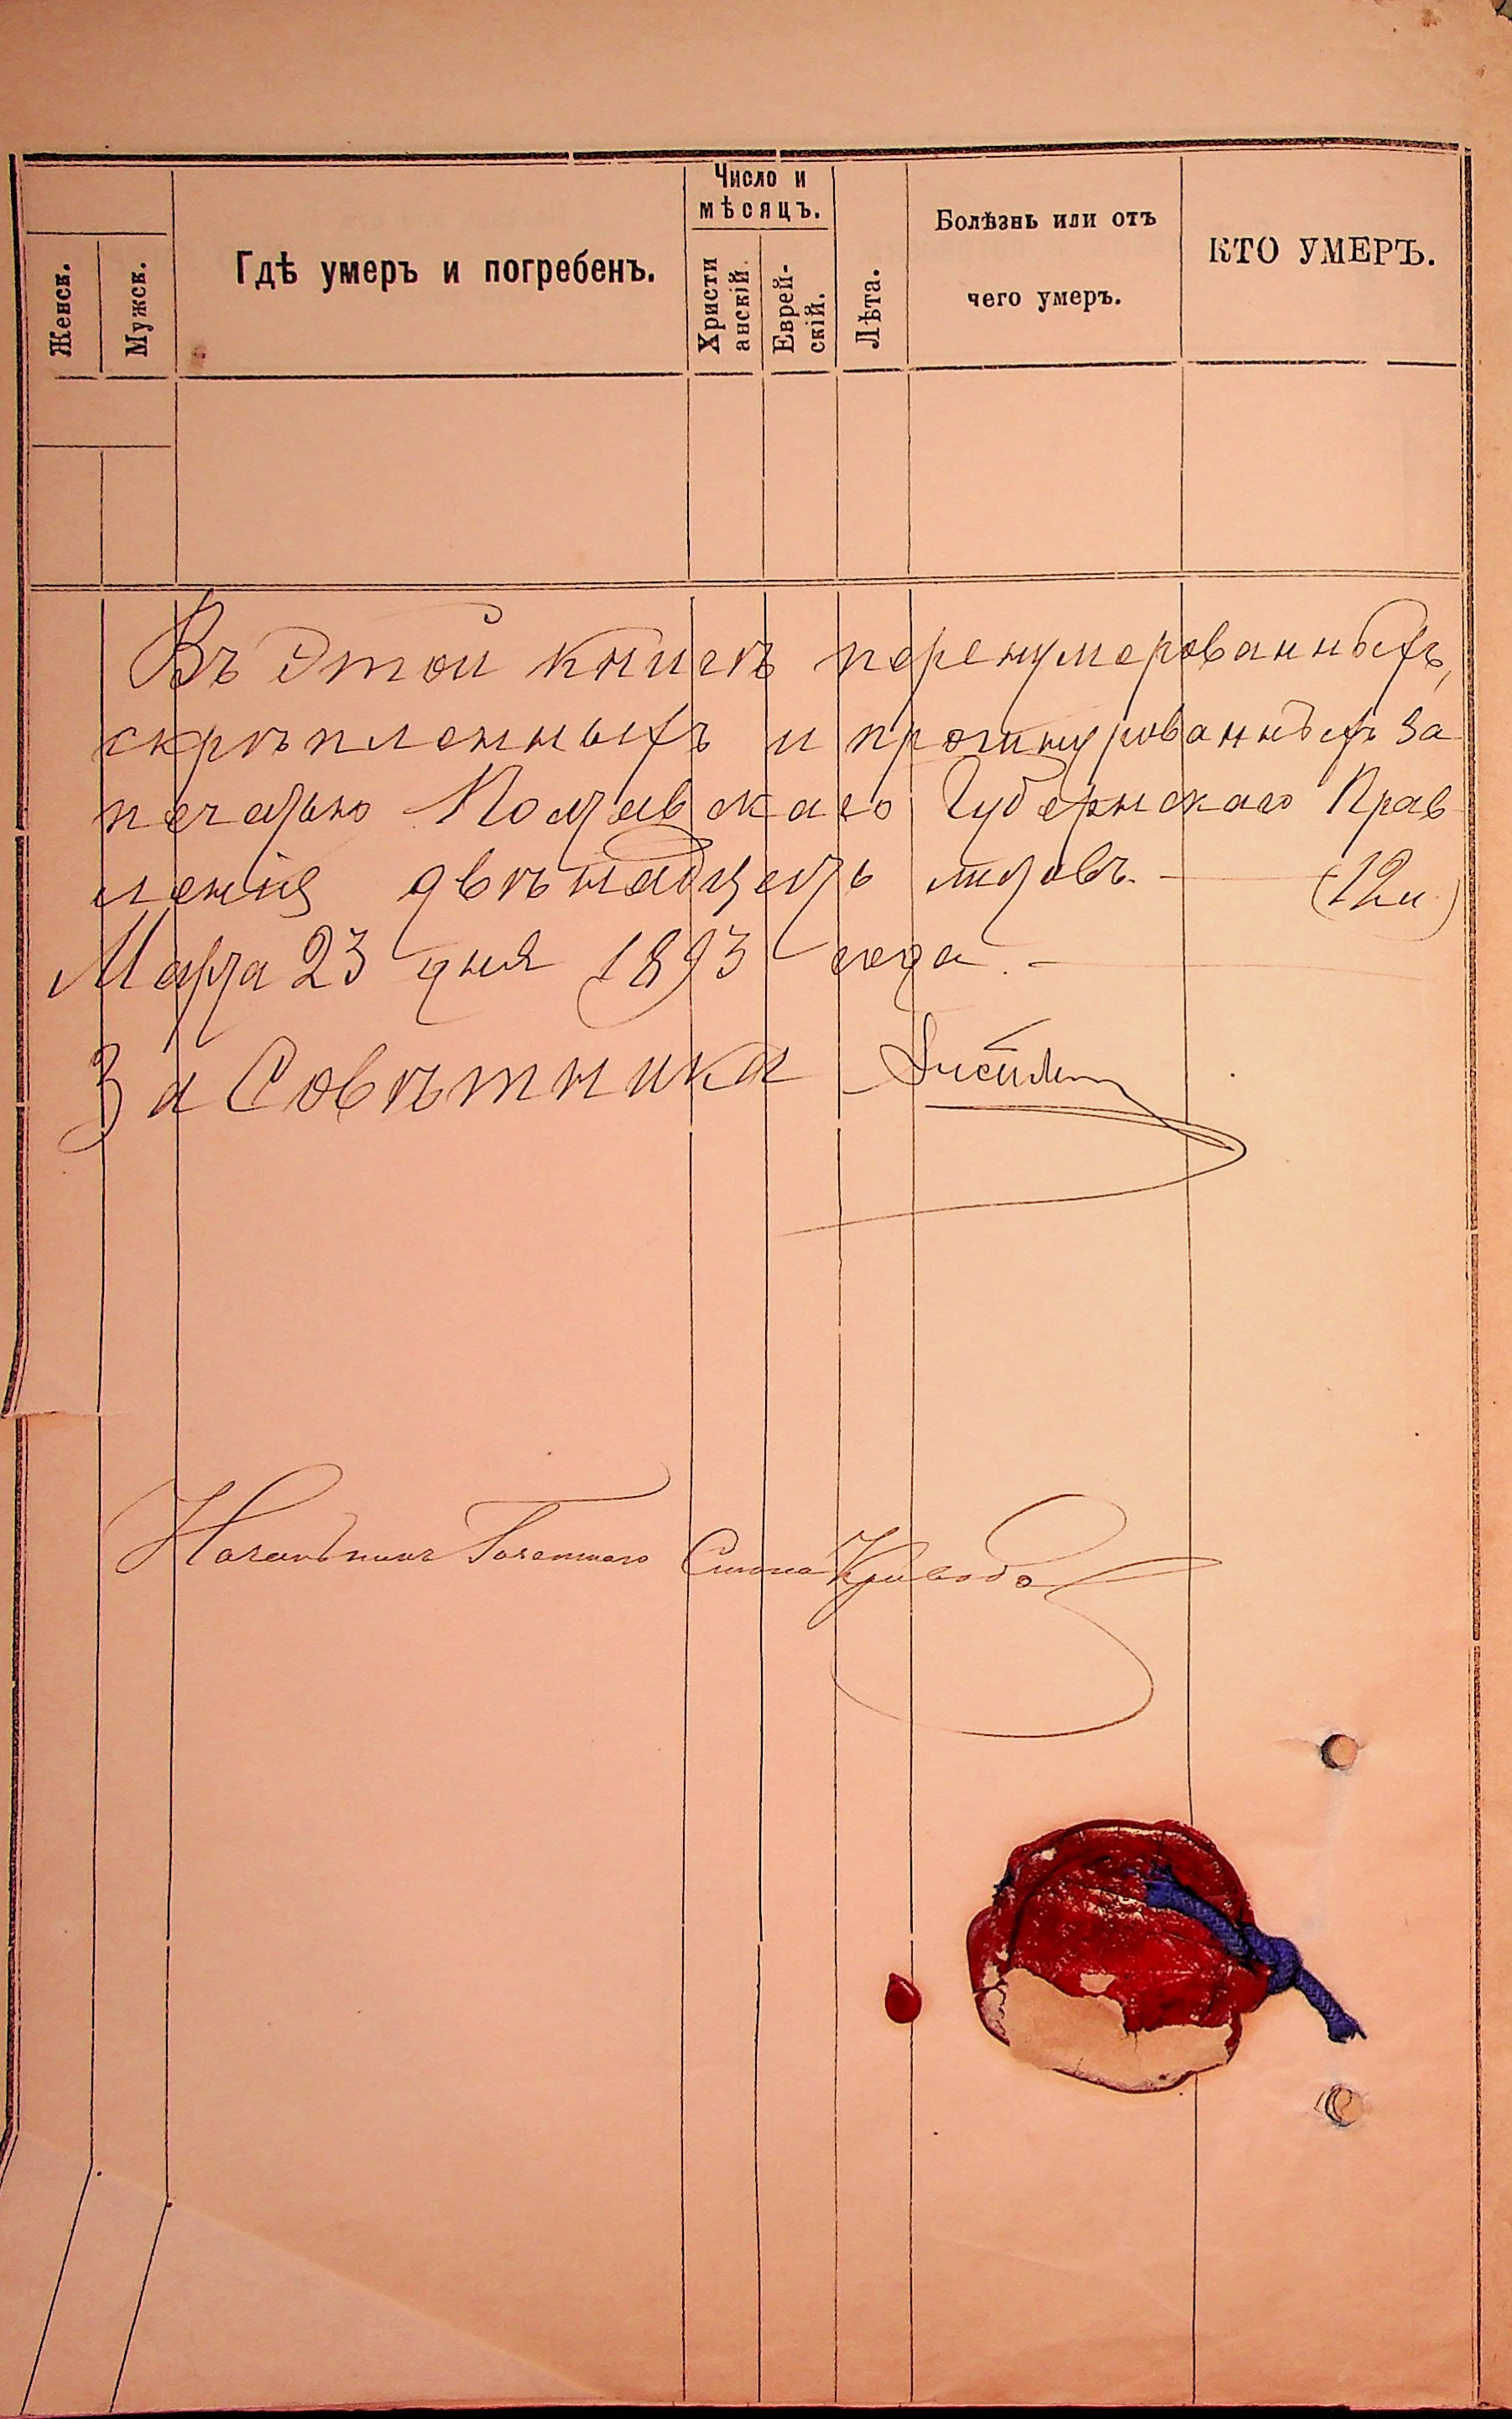 Женск.
Мужск.
Гдѣ умеръ и погребенъ.
Число и
мѣсяцъ.
Христи
анскій.
Еврей-
скій.
Лѣта.
Болѣзнь или отъ
чего умеръ.
КТО УМЕРЪ.
Въ этой книгѣ перенумерованныхъ,
скрѣпленныхъ и прошнурованныхъ за
печатью Полтавскаго Губернскаго Прав
ленія двѣнадцать листовъ. — (12 л.)
Марта 23 дня 1893 года. —
За Совѣтника
Начальникъ Газетнаго Стола